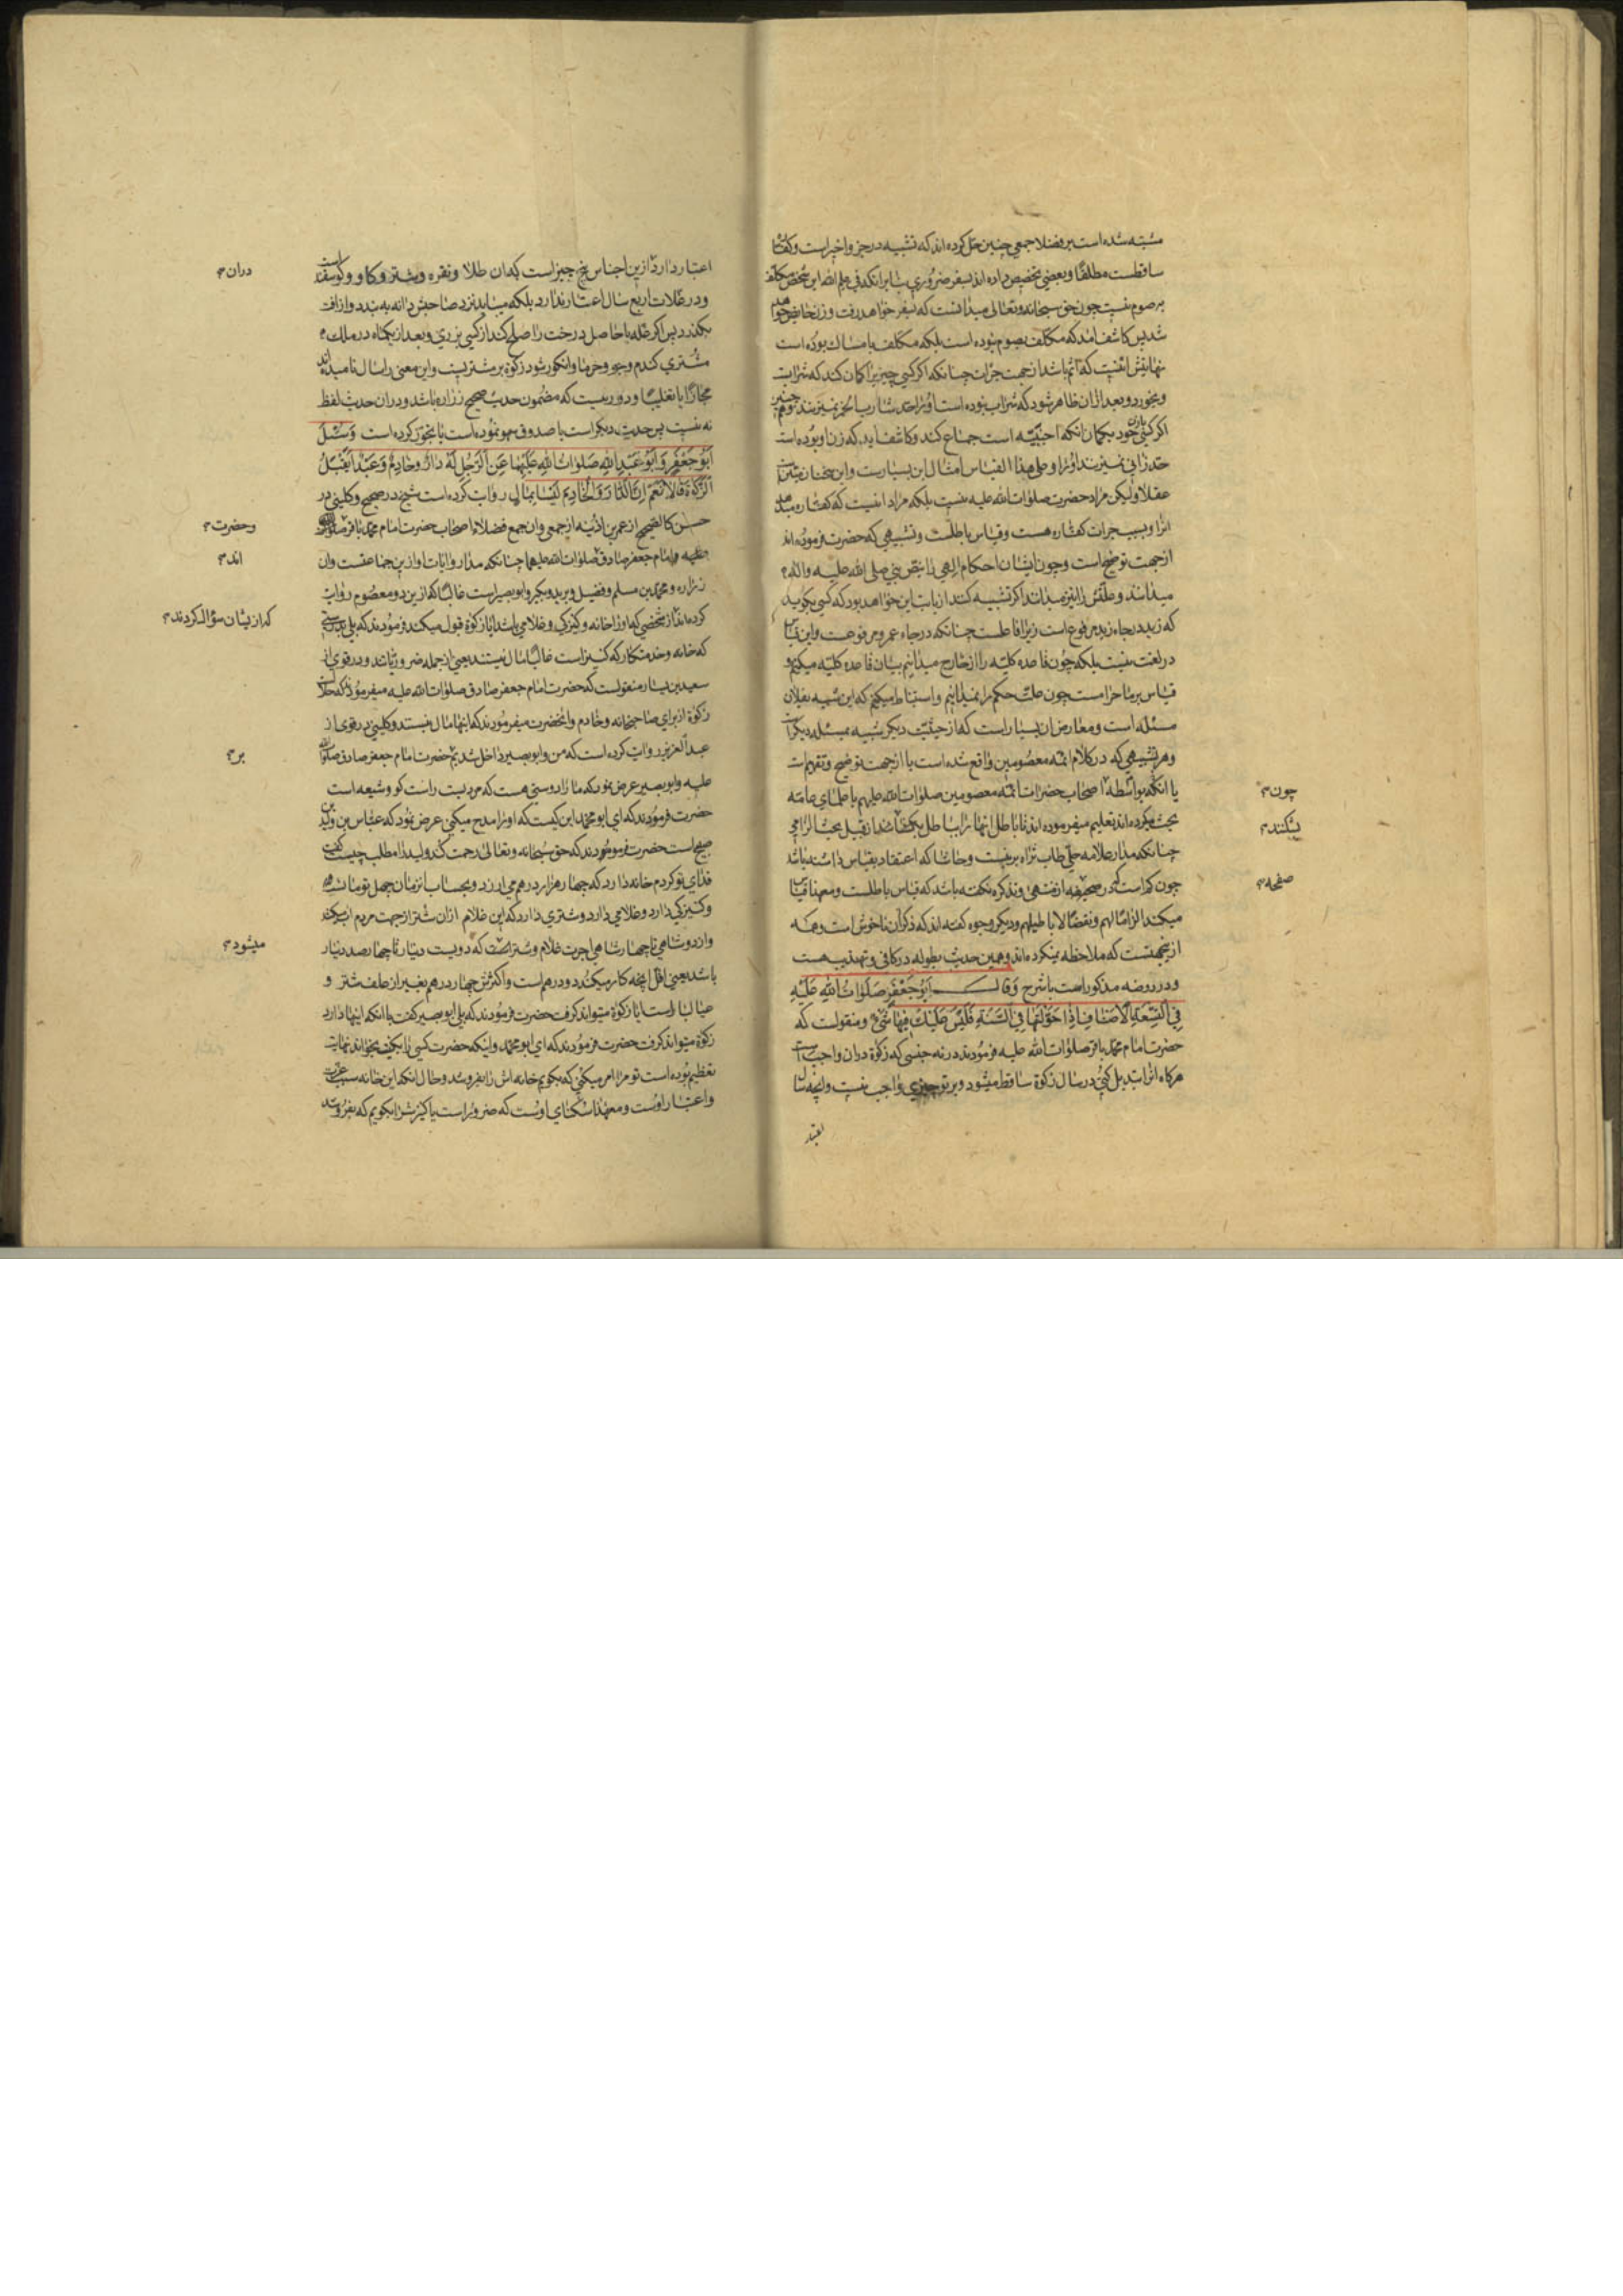 مشتبه شده است بر فضلا جمعی چنین حل کرده اند که تشبیه در جزو اخیر است و کفاره
ساقطست مطلقا و بعضی تخصیص داده اند بسفر ضروری بنا بر انکه فی علم الله این شخص مکلف
بصوم نیست چون حق سبحانه و تعالی میدانست که بسفر خواهد رفت و زن حایض خواهد
شد پس کاشف امد که مکلف بصوم نبوده است بلکه مکلف بامساک بوده است
نهایتش انیست که آثم باشد از جهت جرات چنانکه اگر کسی چیزیرا کمان کند که شرابست
و بخورد و بعد ازان ظاهر شود که شراب نبوده است او را حد شارب الخمر نمیزنند و همچنین
اگر کسی با زن خود بکمان انکه اجنبیه است جماع کند و کاشف اید که زن او بوده است
حد زانی نمیزنند او را و علی هذا القیاس امثال این بسیارست و این سخنان متین است
عقلا و لیکن مراد حضرت صلوات الله علیه نیست بلکه مراد انیست که کفاره میدهد
انرا و بسبب جرات کفاره هست و قیاس باطلست و تشبیهی که حضرت فرموده اند
از جهت توضیح است و چون ایشان احکام الهی را بنص نبی صلی الله علیه و اله
میدانند و علتش را نیز میدانند اکر تشبیه کنند از بابت این خواهد بود که کسی بکوید
که زید در جاء زید مرفوع است زیرا فاعلست چنانکه در جاء عمرو مرفوعست و این قیاس
در لغت نیست بلکه چون قاعده کلیه را از خارج میدانیم بیان قاعده کلیه میکنیم و
قیاس بر ما حرامست چون علت حکم را نمیدانیم و استنباط میکنیم که این شبیه بفلان
مسئله است و معارض ان بسیار است که از حیثیت دیکر شبیه بمسئله دیکر است
و هر تشبیهی که در کلام ائمه معصومین واقع شده است یا از جهت توضیح و تفهیم است
یا انکه بواسطه اصحاب حضرات ائمه معصومین صلوات الله علیهم با علمای عامه
چون
بحث میکرده اند تعلیم میفرموده اند تا باطل انها را بباطل
بشکنند
چنانکه مدار علامه حلی طاب ثراه برینست و حاشا که اعتقاد بقیاس داشته باشد
چون کم است که در صحیفه از منتهی و تذکره نکفته باشد که قیاس باطلست و معهذا قیاس
صفحه
میکند الزاما لهم و نقضا لاباطیلهم و دیکر وجوه کفته اند که ذکر آن ناخوش است و همه
ازینجهتست که ملاحظه نکرده اند و همین حدیث بطوله در کافی و تهذیب هست
و در روضه مذکور است با شرح وَقَالَ اَبُو جَعْفَرٍ صَلَوَاتُ اللهِ عَلَيْهِ
فِي التِّسْعَةِ الْاَصْنَافِ اِذَا حَوَّلْتَهَا فِي السَّنَةِ فَلَيْسَ عَلَيْكَ فِيهَا شَيْءٌ و منقولست که
حضرت امام محمد باقر صلوات الله علیه فرمودند در نه جنسی که زکوة دران واجب است
هرکاه انرا تبدیل کنی در سال زکوة ساقط میشود و بر تو چیزی واجب نیست و انچه سال
اعتبار
اعتبار دارد ازین اجناس پنج چیز است که ان طلا و نقره و شتر و کاو و کوسفند است
دران
و در غلات اربع سال اعتبار ندارد بلکه میباید نزد صاحبش دانه به بندد و از افت
بکذرد پس اکر غله یا حاصل درخت را صلح کند از کسی بزری و بعد از یکماه در ملک
مشتری کندم و جو و خرما و انکور شود زکوة بر مشتریست و این معنی را سال نامیده اند
مجازا یا تغلیبا و دور نیست که مضمون حدیث صحیح زراره باشد و دران حدیث لفظ
نه نیست پس حدیث دیکر است یا صدوق سهو نموده است یا تجوز کرده است وَسُئِلَ
اَبُو جَعْفَرٍ وَاَبُو عَبْدِ اللهِ صَلَوَاتُ اللهِ عَلَيْهِمَا عَنِ الرَّجُلِ لَهُ دَارٌ وَخَادِمٌ وَعَبْدٌ اَيَقْبَلُ
الزَّكٰوةَ قَالَا نَعَمْ اِنَّ الدَّارَ وَالْخَادِمَ لَيْسَا بِمَالٍ روایت کرده است شیخ در صحیح و کلینی در
حسن کالصحیح از عمر بن اذینه از جمعی و ان جمع فضلاء اصحاب حضرت امام محمد باقر صلوات الله
و حضرت
علیه و امام جعفر صادق صلوات الله علیهما چنانکه مدار روایات او ازین جماعتست و ان
اند
زراره و محمد بن مسلم و فضیل و برید و بکیر و ابو بصیر است غالبا که ازین دو معصوم روایت
کرده اند از شخصی که او را خانه و کنیزکی و غلامی باشد ایا زکوة قبول میکند فرمودند که بلی بدرستی
که از یشان سؤال کردند
که خانه و خدمتکار که کنیز است غالبا مال نیستند یعنی از جمله ضروریاتند و در قوی از
سعید بن یسار منقولست که حضرت امام جعفر صادق صلوات الله علیه میفرمودند که حلال
زکوة از برای صاحبخانه و خادم و انحضرت میفرمودند که انها مال نیستند و کلینی در قوی از
عبد العزیز روایت کرده است که من و ابو بصیر داخل شدیم حضرت امام جعفر صادق صلوات الله
بر
علیه و ابو بصیر عرض نمود که ما را دوستی هست که مردیست راست کو و شیعه است
حضرت فرمودند که ای ابو محمد این کیست که او را مدح میکنی عرض نمود که عباس بن ولید بن
صبیح است حضرت فرمودند که حق سبحانه و تعالی رحمت کند ولید را مطلب چیست کفت
فدای تو کردم خانه دارد که چهار هزار درهم می ارزد و بحساب انزمان چهل تومان
و کنیزکی دارد و غلامی دارد و شتری دارد که این غلام ازان شتر از جهت مردم اب میکشد
و از دو شاهی تا چهار شاهی اجرت غلام و شتر است که دویست دینار تا چهار صد دینار
میشود
باشد یعنی اقل انچه کار میکنند دو درهم است و اکثرش چهار درهم بغیر از علف شتر و
عیالبار است ایا زکوة میتواند کرفت حضرت فرمودند که بلی ابو بصیر کفت با انکه اینها دارد
زکوة میتواند کرفت حضرت فرمودند که ای ابو محمد
تعظیم بوده است تو مرا امر میکنی که بکویم خانه اش را بفروشد و حال انکه این خانه سبب عزت
و اعتبار اوست و معهذا سکنای اوست که ضرور است یا کنیزش را بکویم که بفروشد